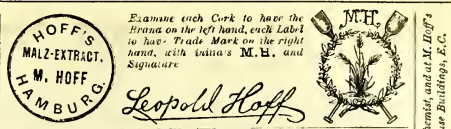 HOFF'S
MALZ-EXTRACT.
M. HOFF
HAMBURG.
Examine each Cork to have the
Brand on the left hand, each Label
to have Trade Mark on the right
hand, with initia's M.H. and
Signature
Leopold Hoff
M.H.
chemist, and at M. Hoff's
se Buildings, E.C.